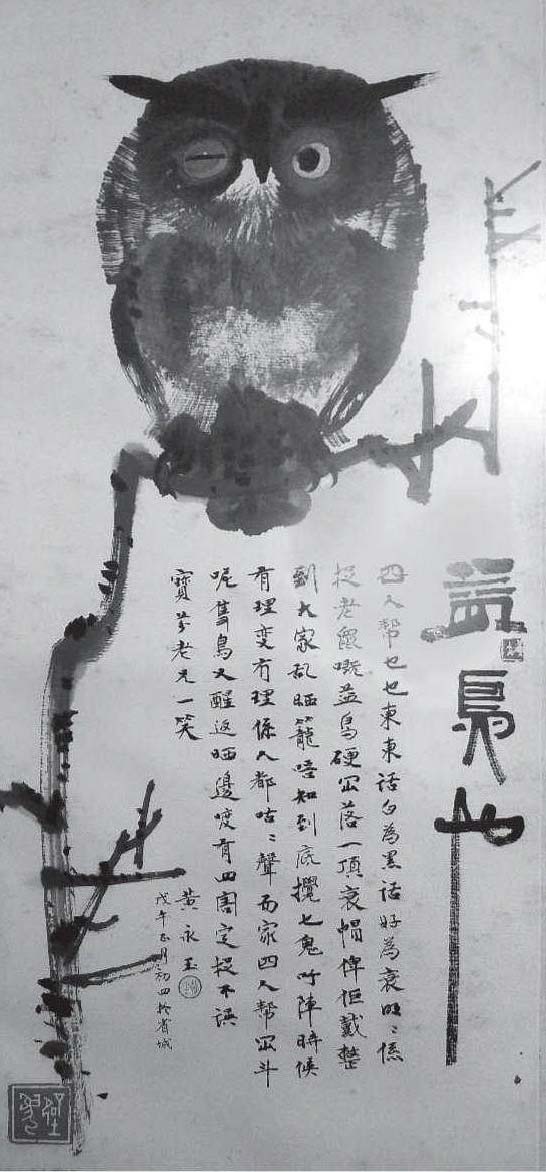 益鳥也
四人帮乜乜東東話白為黑話好為衰明〻係
捉老鼠嘅益鳥硬冚落一頂衰帽俾佢戴整
到大家乱晒籠唔知到底攪乜鬼吖陣時候
有理变有理係人都咕〻聲而家四人帮冚斗
呢隻鳥又醒返晒邊度有四害定捉不誤
寶 老兄一笑
黄永玉
戊午正月初四於省城